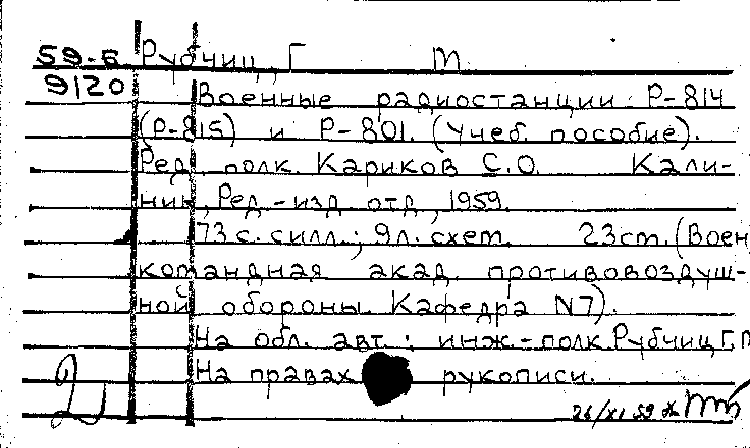 59-6 Рубчиц, Г. П.
9120 Военные радиостанции Р-814
(Р-815) и Р-801. (Учеб. пособие).
Ред. полк. Кариков С.О. Кали-
нин, Ред.-изд. отд., 1959.
73 с. с илл.; 9 л. схем. 23 см. (Воен.
командная акад. противовоздуш-
ной обороны. Кафедра N7).
На обл. авт.: инж.-полк. Рубчиц Г.П.
На правах рукописи.
2
26/XI 59